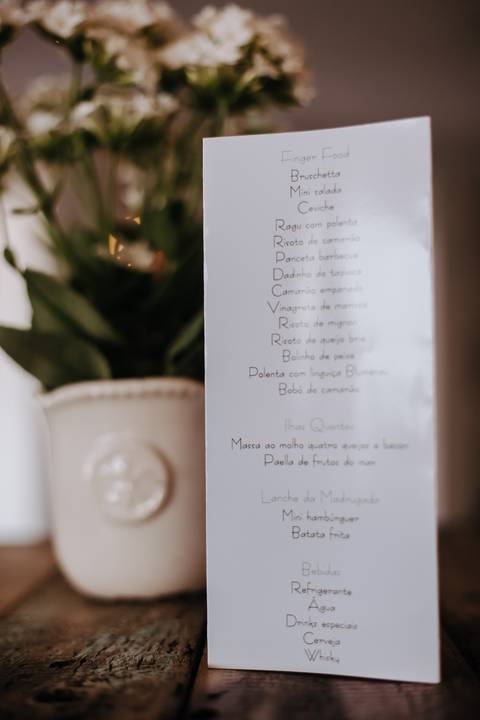 Finger Food
Bruschetta
Mini salada
Ceviche
Ragu com polenta
Risoto de camarão
Panceta barbecue
Dadinho de tapioca
Camarão empanado
Vinagrete de mariscos
Risoto de mignon
Risoto de queijo brie
Bolinho de peixe
Polenta com linguiça Blumenau
Bobó de camarão
Ilhas Quentes
Massa ao molho quatro queijos e bacon
Paella de frutos do mar
Lanche da Madrugada
Mini hambúrguer
Batata frita
Bebidas
Refrigerante
Água
Drinks especiais
Cerveja
Whisky